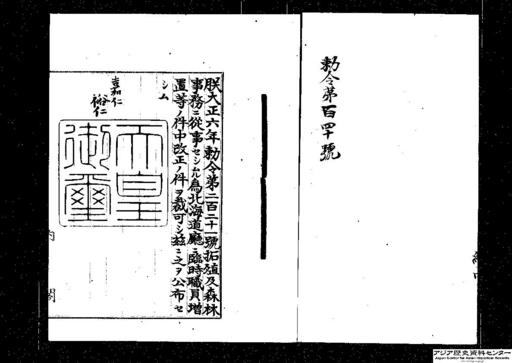 勅令第百四十號
朕大正六年勅令第二百二十一號拓殖及森林
事務ニ從事セシムル為北海道廳ニ臨時職員増
置等ノ件中改正ノ件ヲ裁可シ茲ニ之ヲ公布セ
シム
嘉仁
裕仁
天皇
御璽
内閣
アジア歴史資料センター
Japan Center for Asian Historical Records